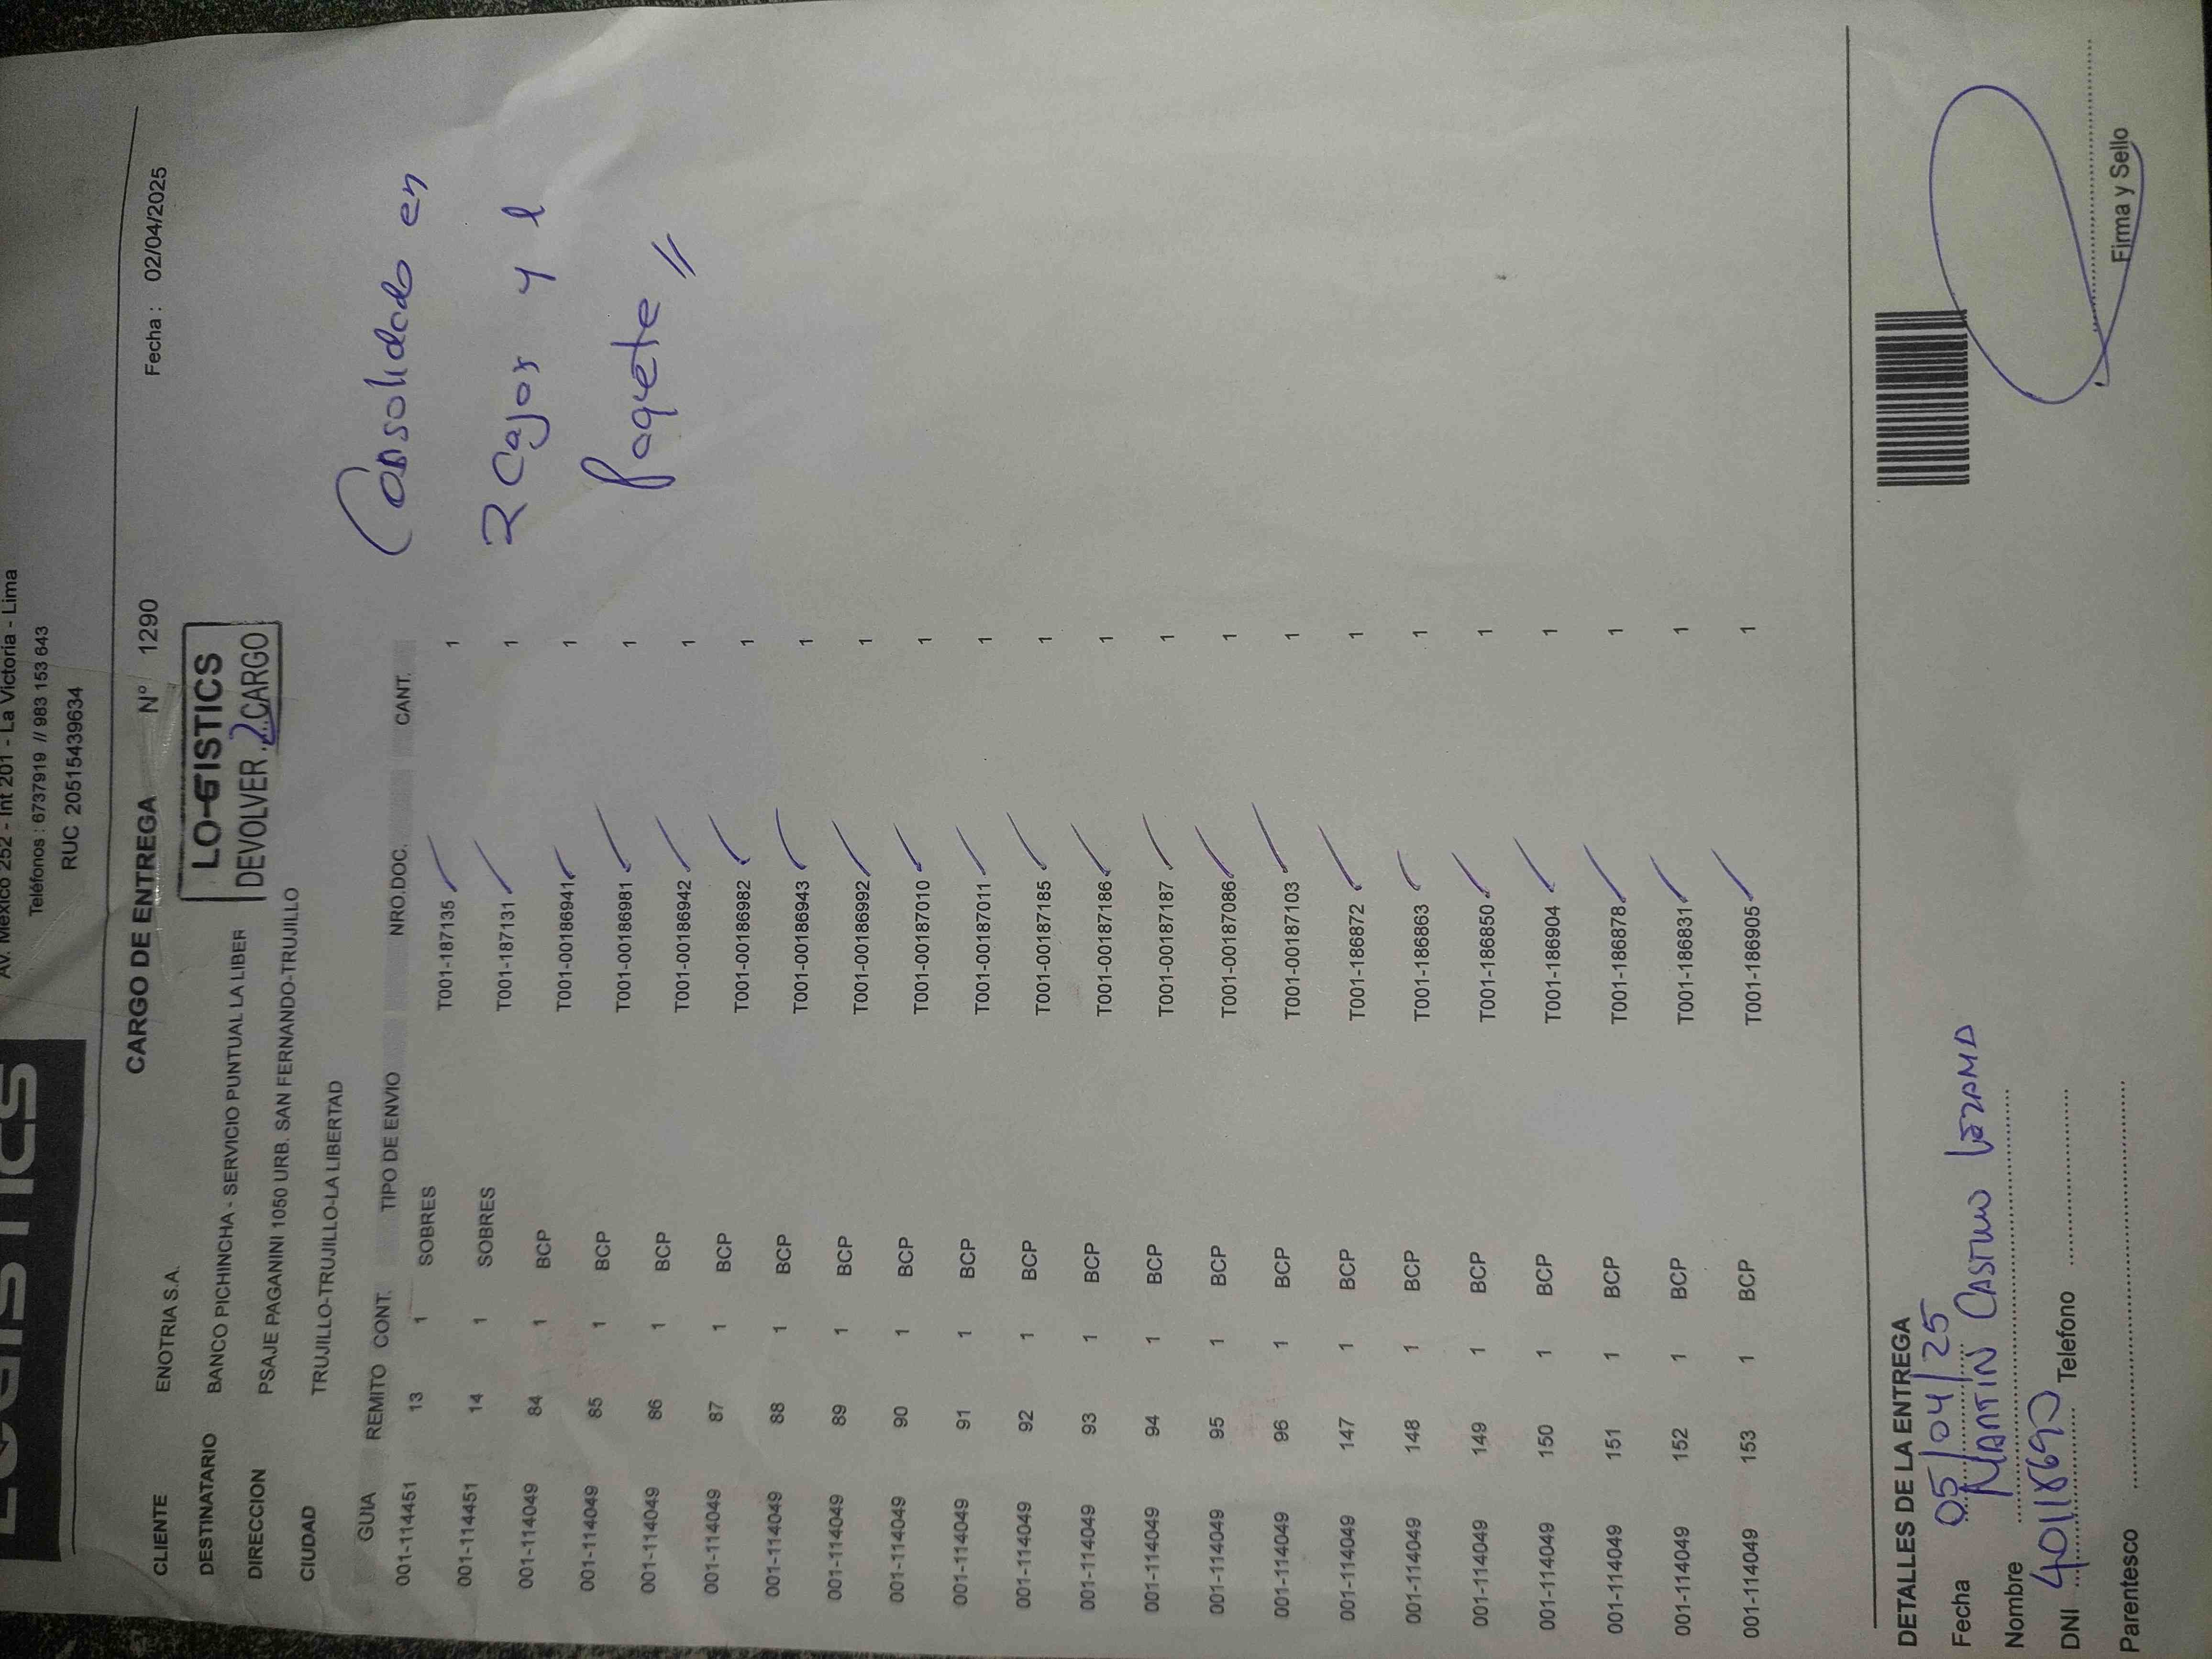 LOGISTICS
Av. Mexico 252 - Int 201 - La Victoria - Lima
Teléfonos : 6737919 // 983 153 643
RUC 20515439634
CARGO DE ENTREGA Nº 1290 Fecha : 02/04/2025
LO-GISTICS
DEVOLVER 2 CARGO
CLIENTE ENOTRIA S.A.
DESTINATARIO BANCO PICHINCHA - SERVICIO PUNTUAL LA LIBER
DIRECCION PSAJE PAGANINI 1050 URB. SAN FERNANDO-TRUJILLO
CIUDAD TRUJILLO-TRUJILLO-LA LIBERTAD
Consolidado en
2 Cajas y 1
paquete //
GUIA REMITO CONT. TIPO DE ENVIO NRO.DOC. CANT.
001-114451 13 1 SOBRES T001-187135 1
001-114451 14 1 SOBRES T001-187131 1
001-114049 84 1 BCP T001-00186941 1
001-114049 85 1 BCP T001-00186981 1
001-114049 86 1 BCP T001-00186942 1
001-114049 87 1 BCP T001-00186982 1
001-114049 88 1 BCP T001-00186943 1
001-114049 89 1 BCP T001-00186992 1
001-114049 90 1 BCP T001-00187010 1
001-114049 91 1 BCP T001-00187011 1
001-114049 92 1 BCP T001-00187185 1
001-114049 93 1 BCP T001-00187186 1
001-114049 94 1 BCP T001-00187187 1
001-114049 95 1 BCP T001-00187086 1
001-114049 96 1 BCP T001-00187103 1
001-114049 147 1 BCP T001-186872 1
001-114049 148 1 BCP T001-186863 1
001-114049 149 1 BCP T001-186850 1
001-114049 150 1 BCP T001-186904 1
001-114049 151 1 BCP T001-186878 1
001-114049 152 1 BCP T001-186831 1
001-114049 153 1 BCP T001-186905 1
DETALLES DE LA ENTREGA
Fecha 05/04/25
Nombre MARTIN CASTILLO LEZAMA
DNI 40118690 Telefono
Parentesco Firma y Sello